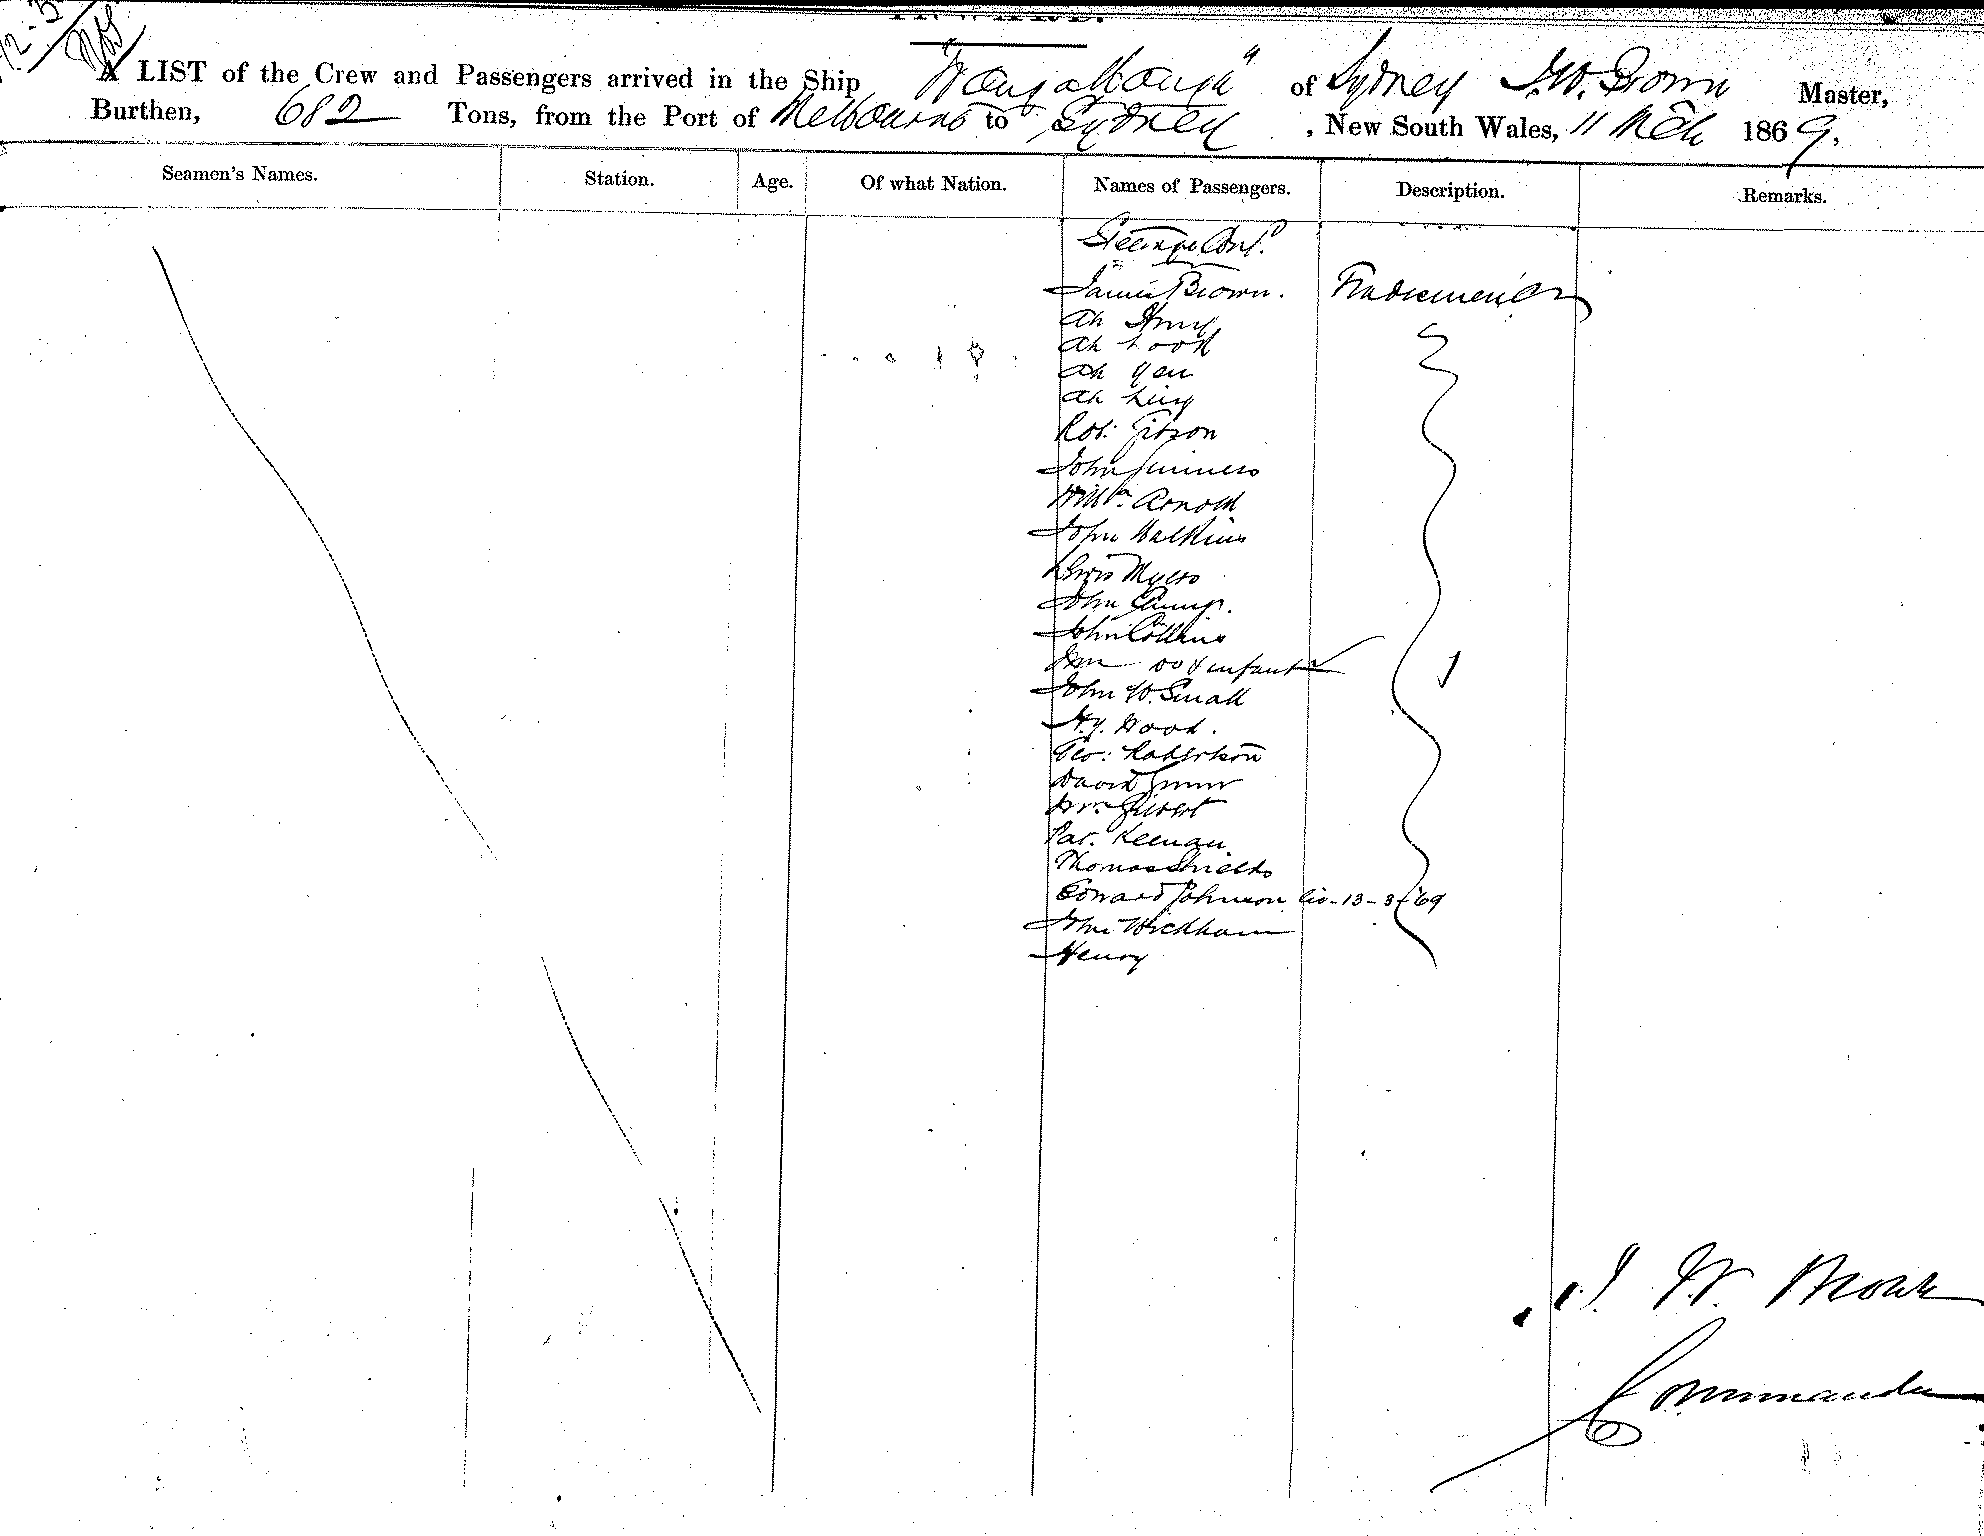 A LIST of the Crew and Passengers arrived in the Ship "Wonga Wonga" of Sydney J.W. Brown Master,
Burthen, 682 Tons, from the Port of Melbourne to Sydney, New South Wales, 11 Mch 1869.
Seamen's Names. Station. Age. Of what Nation. Names of Passengers. Description. Remarks.
Steerage
James Brown. Tradesmen &c
Ah
Ah
Ah
Ah
Robt Gibson
John
Willm Arnold
John Watkins
Lewis Myers
John
John Collins
Do & infant
John W. Small
Hy. Wood.
Geo: Robertson
David
Wm Gilbert
Pat. Keenan
Thomas Shields
Edward Johnson 13-3-69
John Wickham
Henry
J W Brown
Commander